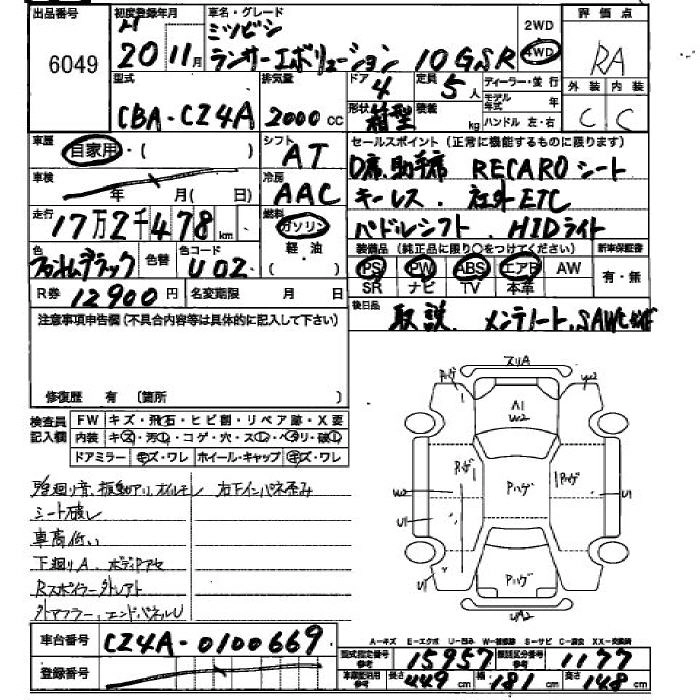 出品番号 初度登録年月 車名・グレード 2WD 評価点
6049 H20 11月 ミツビシ ランサーエボリューション 10 GSR 4WD RA
型式 排気量 ドア 定員 ディーラー・並行 外装 内装
CBA-CZ4A 2000cc 4 5人 モデル年式 年 C C
形状 箱型 装備 kg ハンドル 左・右
車歴 自家用・( ) シフト AT セールスポイント(正常に機能するものに限ります)
D席、助手席 RECAROシート
車検 年 月( 日) 冷房 AAC キーレス、社外ETC
走行 17万2千478km 燃料 ガソリン パドルシフト、HIDライト
軽・油 ( )
色 ファントムブラック 色替 色コード U02 装備品(純正品に限り〇をつけてください) 新車保証書
PS PW ABS エアB AW 有・無
SR ナビ TV 本革
R券 12900円 名変期限 月 日
後日品 取説、メンテノート、
注意事項申告欄(不具合内容等は具体的に記入して下さい)
修復歴 有 (箇所 )
検査員記入欄 FW キズ・飛石・ヒビ割・リペア跡・X要
内装 キズ・汚れ・コゲ・穴・スレ・ヘタリ・破れ
ドアミラー キズ・ワレ ホイール・キャップ キズ・ワレ
振動アリ、オイルモレ 右下インパネ歪み
シート破レ
車高低い
下廻りA、ボディ
Rスポイラー
外マフラー、エンドパネルU
スリA
ハゲ W2
A1
W2
ハゲ ハゲ ハゲ
W2
U1 U1
U1 ハゲ
UA2
車台番号 CZ4A-0100669
登録番号
A-キズ E-エクボ U-凹み W-補修跡 S-サビ C-腐食 XX-交換済
型式指定番号 参考 15957 類別区分番号 参考 1177
参考 長さ 449cm 幅 181cm 高さ 148cm